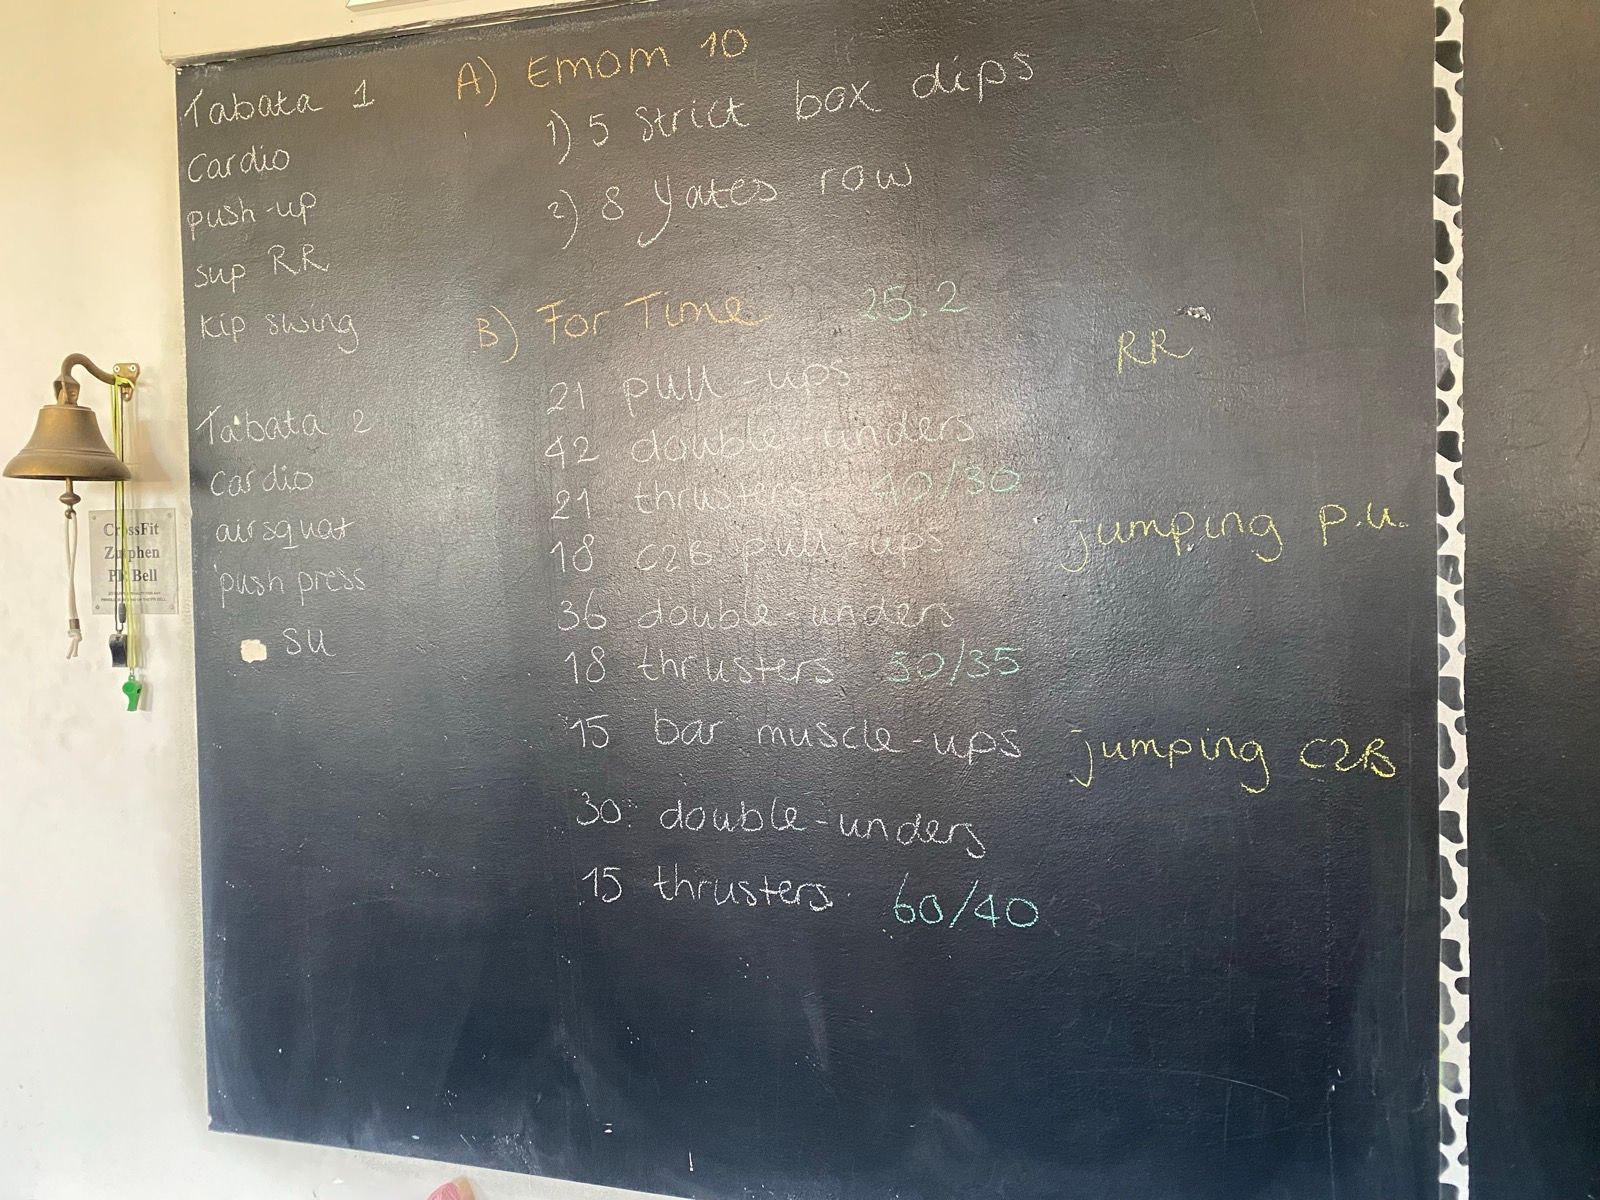 Tabata 1
Cardio
push-up
sup RR
kip swing
Tabata 2
cardio
air squat
push press
su
A) Emom 10
1) 5 strict box dips
2) 8 Yates row
B) For Time 25.2
RR
21 pull-ups
42 double-unders
21 thrusters 40/30
18 C2B pull-ups jumping p.u.
36 double-unders
18 thrusters 50/35
15 bar muscle-ups jumping C2B
30 double-unders
15 thrusters 60/40
CrossFit
Zutphen
PR Bell